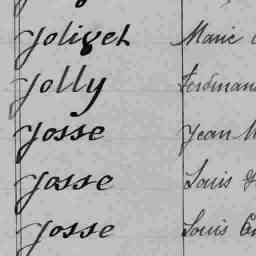 Jolivet Marie
Jolly Ferdinand
Josse Jean
Josse Louis
Josse Louis